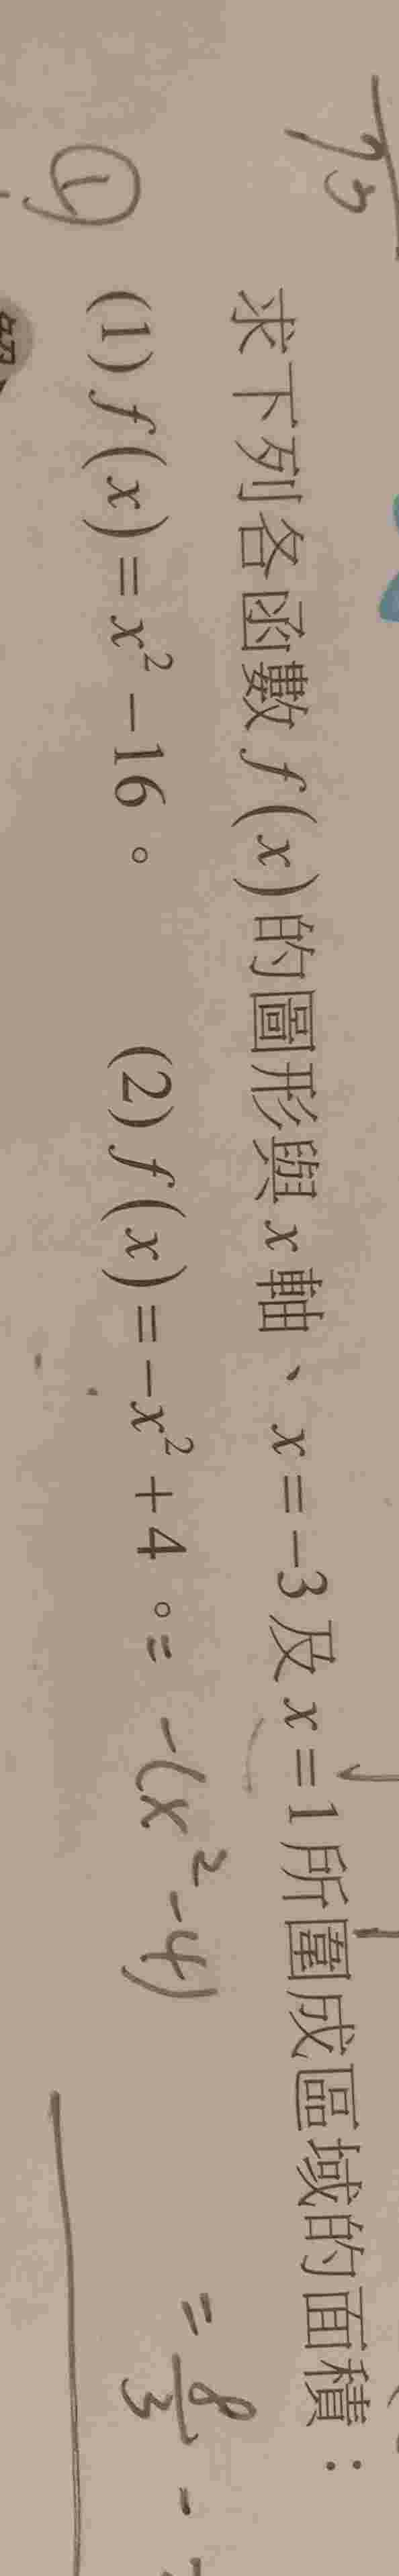 求下列各函數 f(x) 的圖形與 x 軸、x=-3 及 x=1 所圍成區域的面積：
① (1) f(x)=x²-16。 (2) f(x)=-x²+4。= -(x²-4)
= 8/3 -